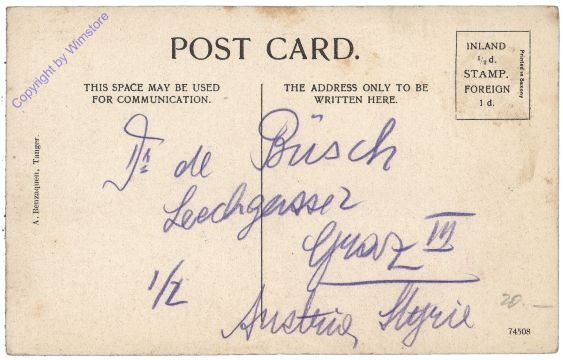 Copyright by Wimstore
POST CARD.
THIS SPACE MAY BE USED
FOR COMMUNICATION.
THE ADDRESS ONLY TO BE
WRITTEN HERE.
INLAND
½d.
STAMP.
FOREIGN
1d.
Printed in Saxony
A. Benzaquen, Tanger.
Dr de Büsch
Leechgasse
Graz III
1/2
Austria, Styrie
20.—
74508